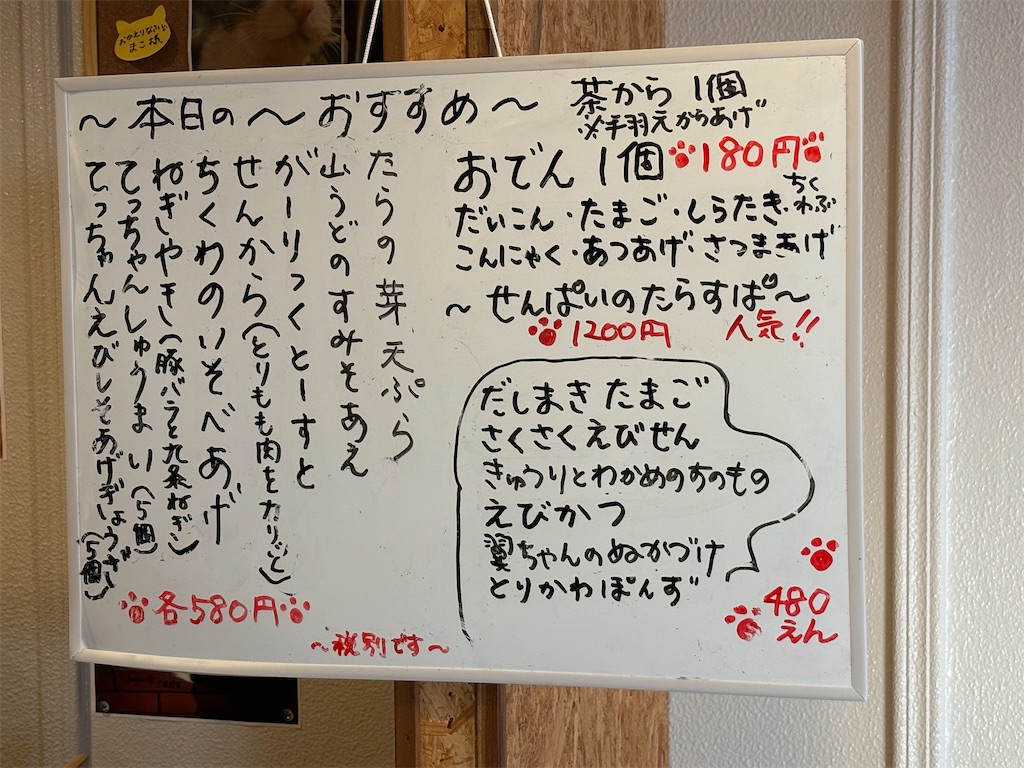 おかえりなさい
まこ様
～本日の～おすすめ～
たらの芽天ぷら
山うどのすみそあえ
がーりっくとーすと
せんから(とりもも肉を
ちくわのいそべあげ
ねぎしやき(豚バラと九条ねぎ)
てっちゃんしゅうまい(5個)
てっちゃんえびしそあげぎょうざ(5個)
各580円
～税別です～
茶から 1個
※手羽えからあげ
おでん 1個 180円
だいこん・たまご・しらたき・ちくわぶ
こんにゃく・あつあげ・さつまあげ
～せんぱいのたらすぱ～
1200円 人気!!
だしまきたまご
さくさくえびせん
きゅうりとわかめのすのもの
えびかつ
翼ちゃんのぬかづけ
とりかわぽんず
480
えん